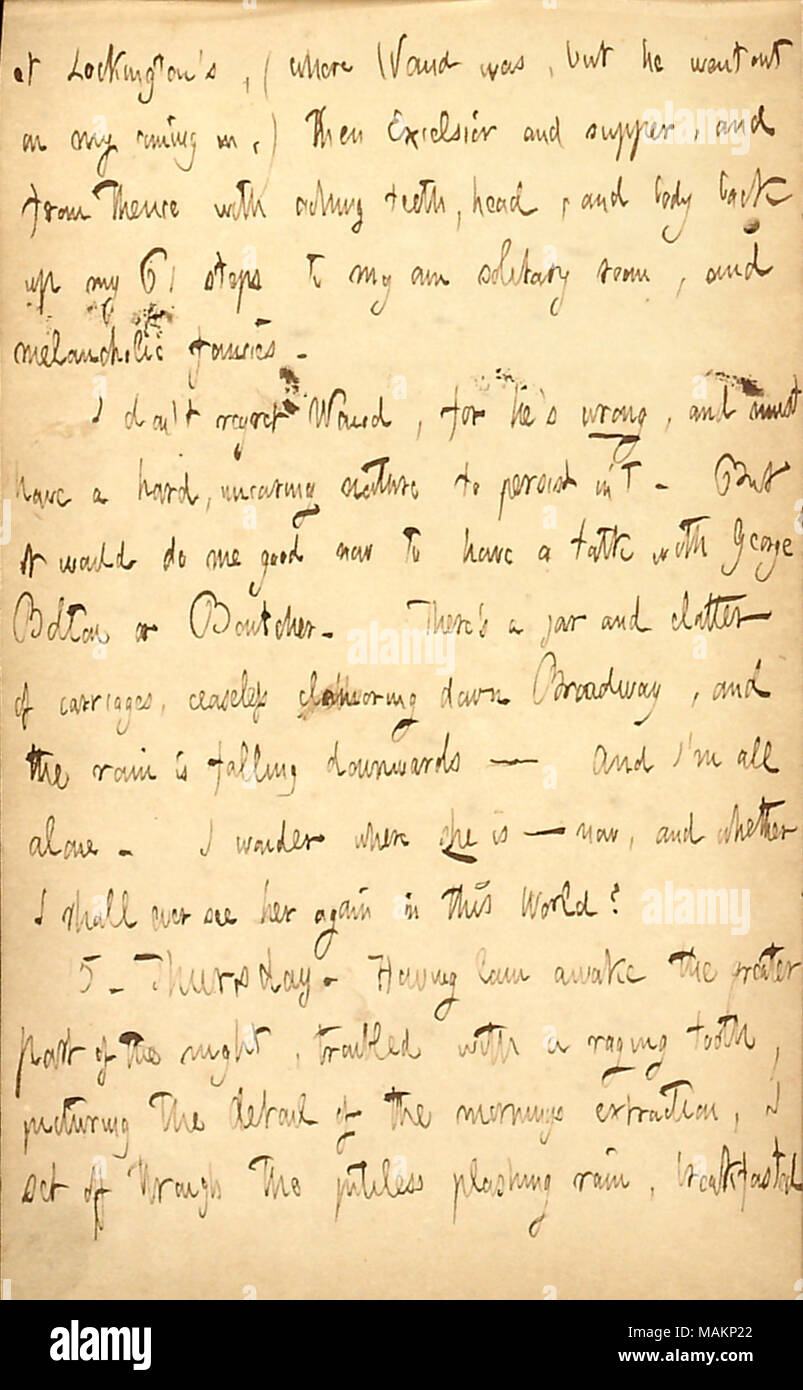 at Lockington's, (where Waud was, but he went out
on my coming in.) Then Excelsior and supper, and
from thence with aching teeth, head, and body back
up my 61 steps to my own solitary room, and
melancholic fancies.
I don't regret Waud, for he's wrong, and must
have a hard, uncaring nature to persist in 't. But
it would do me good now to have a talk with George
Bolton or Boutcher. There's a jar and clatter
of carriages, ceaseless clamoring down Broadway, and
the rain is falling downwards — And I'm all
alone. I wonder where she is — now, and whether
I shall ever see her again in this World?
5. Thursday. Having lain awake the greater
part of the night, troubled with a raging tooth,
picturing the detail of the mornings extraction, I
set off through the pitiless plashing rain, breakfasted
alamy stock photo
MAKP22
www.alamy.com